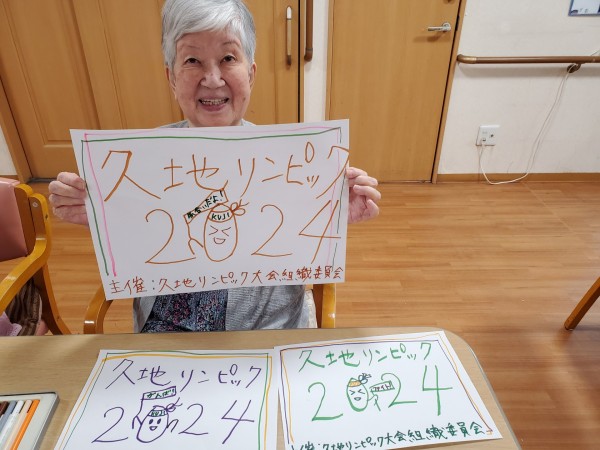 久地リンピック
KUJI
2024
主催：久地リンピック大会組織委員会
久地リンピック
KUJI
2024
久地リンピック
ファイト!
2024
主催：久地リンピック大会組織委員会